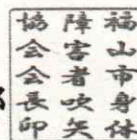 福山市身体
障害者吹矢
協会会長印